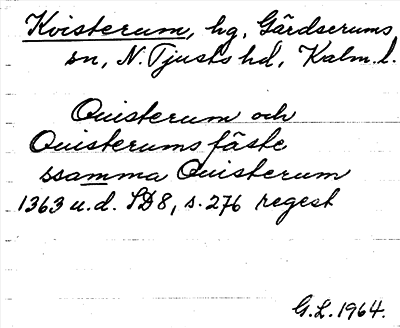 Kvisterum, hg, Gärdserums
sn, N. Tjusts hd, Kalm. l.
Quisterum och
Quisterums fäste
ssamma Quisterum
1363 u.d. SD8, s. 276 regest
G.L. 1964.